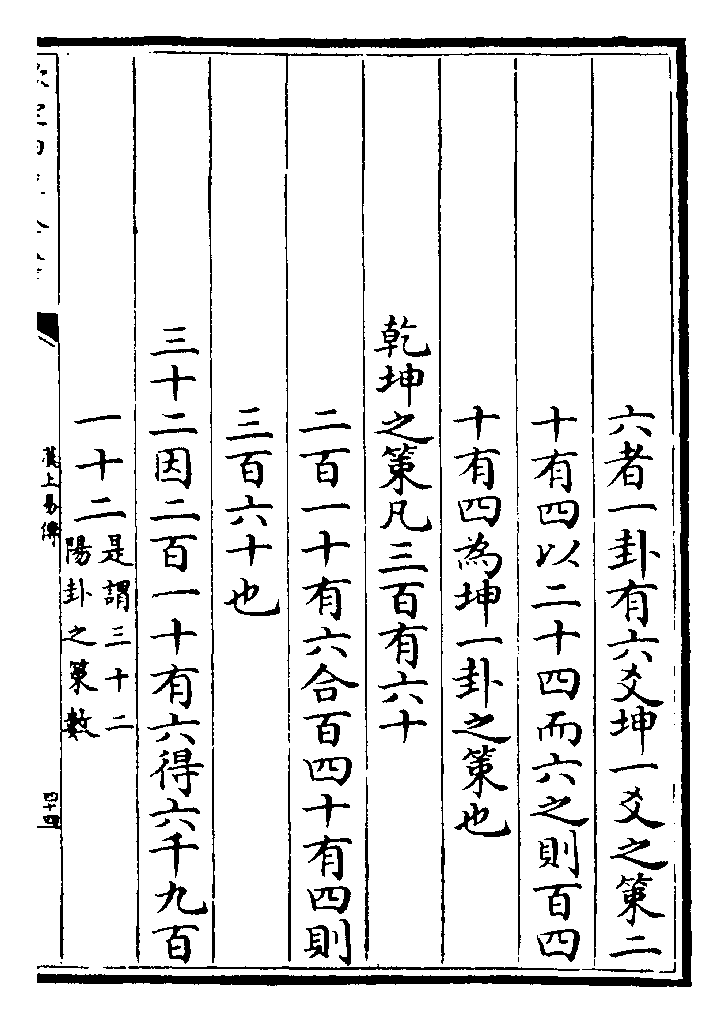 六者一卦有六爻坤一爻之策二
十有四以二十四而六之則百四
十有四為坤一卦之策也
乾坤之策凡三百有六十
二百一十有六合百四十有四則
三百六十也
三十二因二百一十有六得六千九百
一十二是謂三十二
陽卦之策數
漢上易傳
四十四